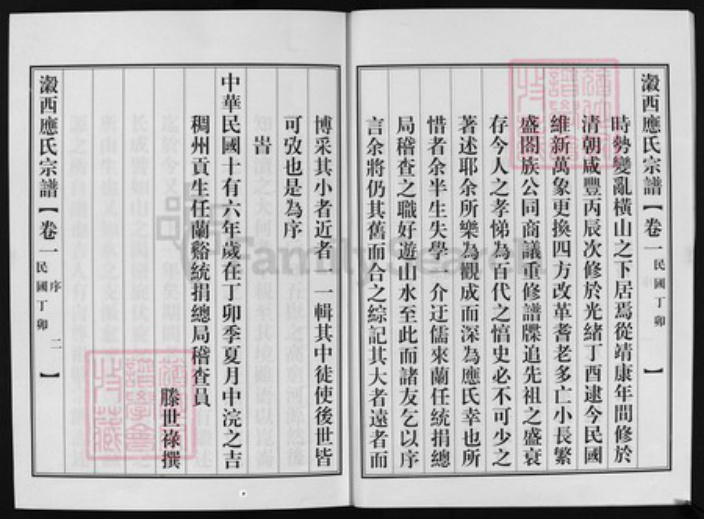 瀫西應氏宗譜【卷一 民國丁卯 】
時勢變亂橫山之下居焉從靖康年間修於
清朝咸豐丙辰次修於光緒丁酉逮今民國
維新萬象更換四方改革耆老多亡小長繁
盛閤族公同商議重修譜牒追先祖之盛衰
存今人之孝悌為百代之信史必不可少之
著述耶余所樂為觀成而深為應氏幸也所
惜者余半生失學一介迂儒來蘭任統捐總
局稽查之職好遊山水至此而諸友乞以序
言余將仍其舊而合之綜記其大者遠者而
博采其小者近者一輯其中徒使後世皆
可攷也是為序
旹
中華民國十有六年歲在丁卯季夏月中浣之吉
稠州貢生任蘭谿統捐總局稽查員
滕世祿撰
瀫西應氏宗譜【卷一 序 民國丁卯 二】
FamilySearch